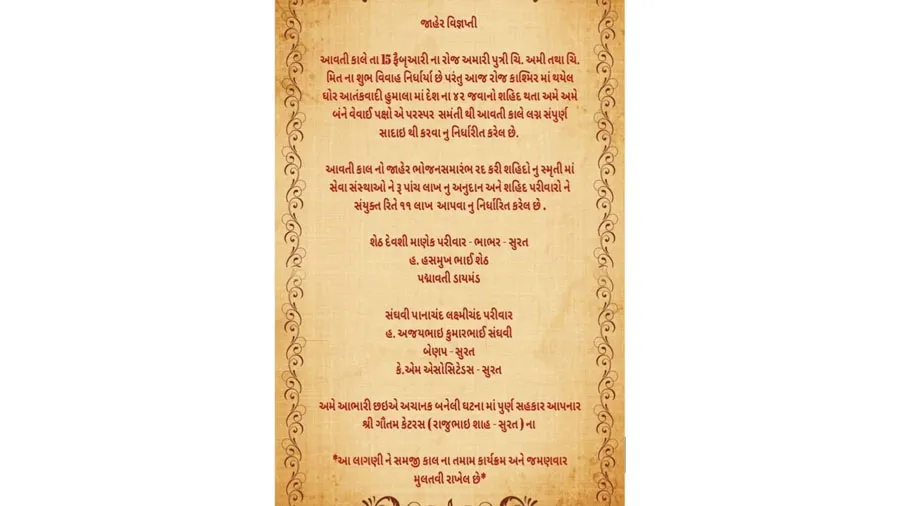 જાહેર વિજ્ઞપ્તી
આવતી કાલે તા 15 ફેબ્રુઆરી ના રોજ અમારી પુત્રી ચિ. અમી તથા ચિ.
મિત ના શુભ વિવાહ નિર્ધાર્યા છે પરંતુ આજ રોજ કાશ્મિર માં થયેલ
ઘોર આતંકવાદી હુમાલા માં દેશ ના ૪૨ જવાનો શહિદ થતા અમે અમે
બંને વેવાઈ પક્ષો એ પરસ્પર સમંતી થી આવતી કાલે લગ્ન સંપુર્ણ
સાદાઇ થી કરવા નુ નિર્ધારીત કરેલ છે.
આવતી કાલ નો જાહેર ભોજનસમારંભ રદ કરી શહિદો નુ સ્મૃતી માં
સેવા સંસ્થાઓ ને રૂ પાંચ લાખ નુ અનુદાન અને શહિદ પરીવારો ને
સંયુક્ત રિતે ૧૧ લાખ આપવા નુ નિર્ધારિત કરેલ છે .
શેઠ દેવશી માણેક પરીવાર - ભાભર - સુરત
હ. હસમુખ ભાઈ શેઠ
પદ્માવતી ડાયમંડ
સંઘવી પાનાચંદ લક્ષ્મીચંદ પરીવાર
હ. અજયભાઇ કુમારભાઈ સંઘવી
બેણપ - સુરત
કે.એમ એસોસિટેડસ - સુરત
અમે આભારી છઇએ અચાનક બનેલી ઘટના માં પુર્ણ સહકાર આપનાર
શ્રી ગૌતમ કેટરસ ( રાજુભાઇ શાહ - સુરત ) ના
*આ લાગણી ને સમજી કાલ ના તમામ કાર્યક્રમ અને જમણવાર
મુલતવી રાખેલ છે*